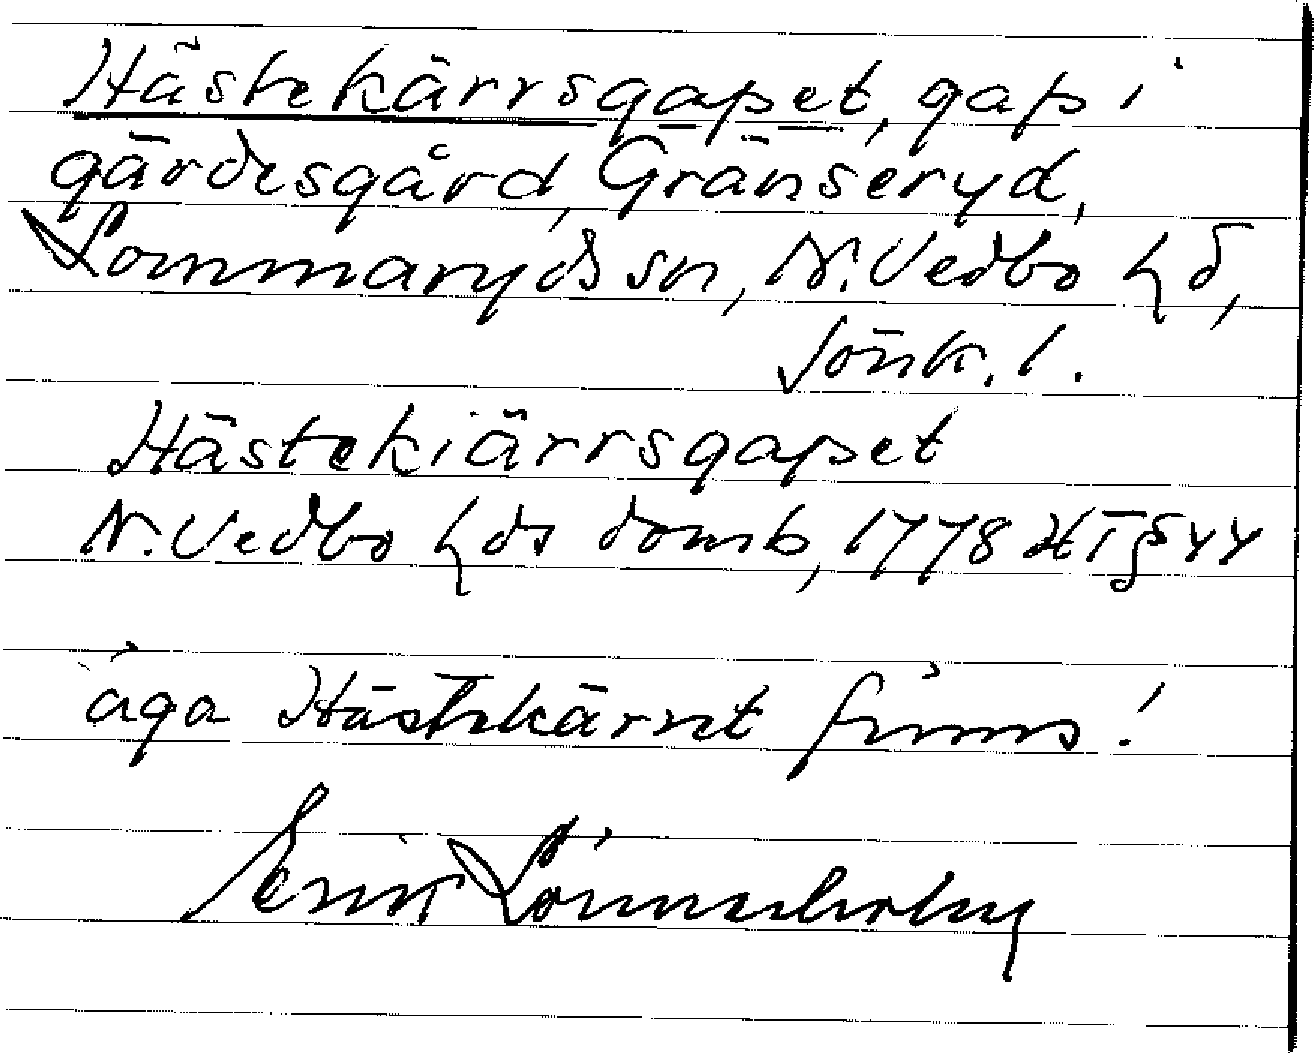 Hästekärrsgapet, gap i
gärdesgård, Gränseryd,
Lommaryds sn, N. Vedbo hd,
Jönk. l.
Hästekiärrsgapet
N. Vedbo hds domb, 1778 HT § 44
äga Hästekärret finns!
Erik